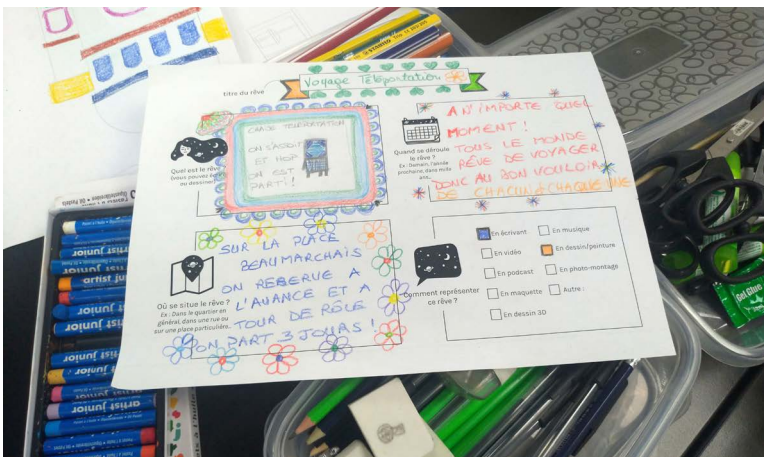 Titre du rêve
Voyage Téléportation
Quel est le rêve ?
(vous pouvez
ou dessiner)
CHAISE TELEPORTATION
ON S'ASSOIT
ET HOP
ON EST
PARTI !
Quand se déroule
le rêve ?
Ex : Demain, l'année
prochaine, dans mille
ans...
A N'IMPORTE QUEL
MOMENT !
TOUS LE MONDE
RÊVE DE VOYAGER
DONC AU BON VOULOIR
DE CHACUN & CHAQUE UNE
Où se situe le rêve ?
Ex : Dans le quartier en
général, dans une rue ou
sur une place particulière.
SUR LA PLACE
BEAUMARCHAIS
ON RESERVE A
L'AVANCE ET A
TOUR DE RÔLE
ON PART 3 JOURS !
Comment représenter
ce rêve ?
En écrivant
En musique
En vidéo
En dessin/peinture
En podcast
En photo-montage
En maquette
Autre :
En dessin 3D
STABILO
artist junior
junior artist
junior
artist junior
artist junior
artist junior
Gel Glue